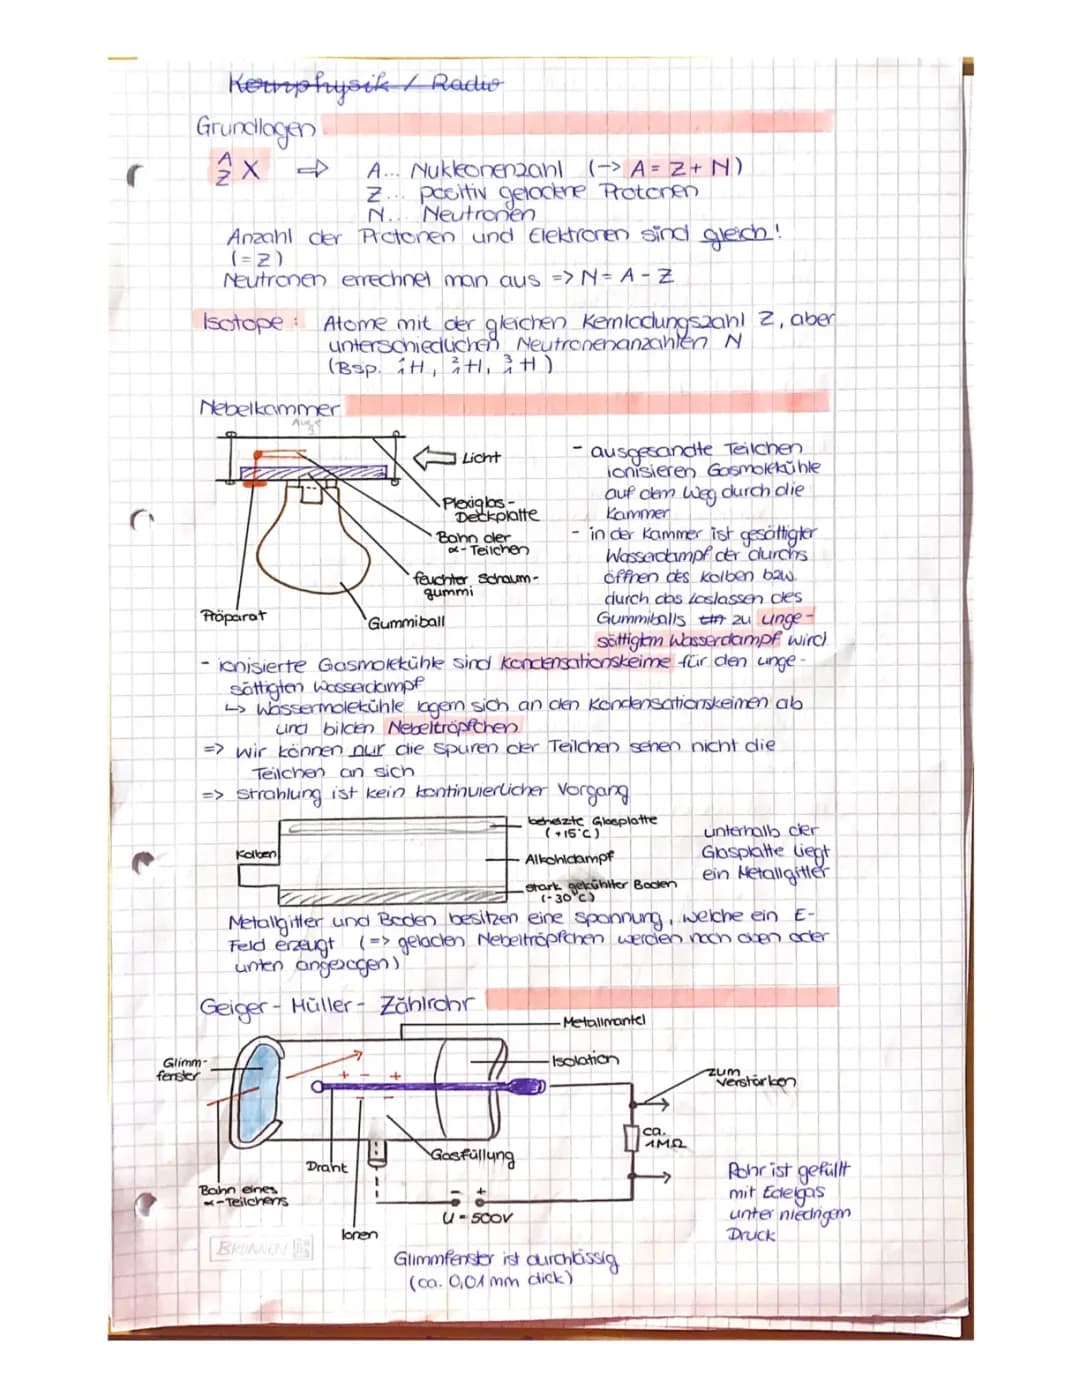 Kernphysik / Radio
Grundlagen
A
Z X ⇒ A... Nukleonenzahl (-> A = Z + N)
Z... positiv geladene Protonen
N... Neutronen
Anzahl der Protonen und Elektronen sind gleich!
(= Z)
Neutronen errechnet man aus => N = A - Z
Isotope : Atome mit der gleichen Kernladungszahl Z, aber
unterschiedlichen Neutronenanzahlen N
(Bsp. ¹₁H, ²₁H, ³₁H)
Nebelkammer
Licht
Plexiglas-
Deckplatte
Bahn der
α-Teilchen
feuchter Schaum-
gummi
Präparat
Gummiball
- ausgesandte Teilchen
ionisieren Gasmoleküle
auf dem Weg durch die
Kammer
- in der Kammer ist gesättigter
Wasserdampf der durchs
öffnen des Kolben bzw.
durch das loslassen des
Gummiballs zu unge-
sättigtem Wasserdampf wird
- ionisierte Gasmoleküle sind Kondensationskeime für den unge-
sättigten Wasserdampf
↳ Wassermoleküle lagern sich an den Kondensationskeimen ab
und bilden Nebeltröpfchen
=> wir können nur die Spuren der Teilchen sehen nicht die
Teilchen an sich
=> Strahlung ist kein kontinuierlicher Vorgang
Kolben
beheizte Glasplatte
(+15°C)
Alkoholdampf
stark gekühlter Boden
(-30°C)
unterhalb der
Glasplatte liegt
ein Metallgitter
Metallgitter und Boden besitzen eine Spannung, welche ein E-
Feld erzeugt (=> geladen Nebeltröpfchen werden nach oben oder
unten angezogen)
Geiger - Müller - Zählrohr
Metallmantel
Glimm-
fenster
Isolation
zum
Verstärken
+ - +
- -
ca.
1MΩ
Draht
Gasfüllung
Bahn eines
α-Teilchens
Ionen
- +
U = 500V
Rohr ist gefüllt
mit Edelgas
unter niedrigem
Druck
BRUNNEN
Glimmfenster ist durchlässig
(ca. 0,01 mm dick)